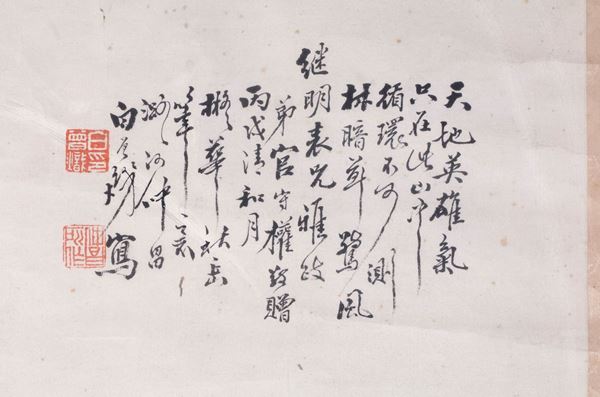 天地英雄氣
只在此山中
循環不可測
林暗草驚風
继明表兄雅政
弟官守權敬贈
丙戌清和月
擬華秋岳
筆意
河仲昌
白寫